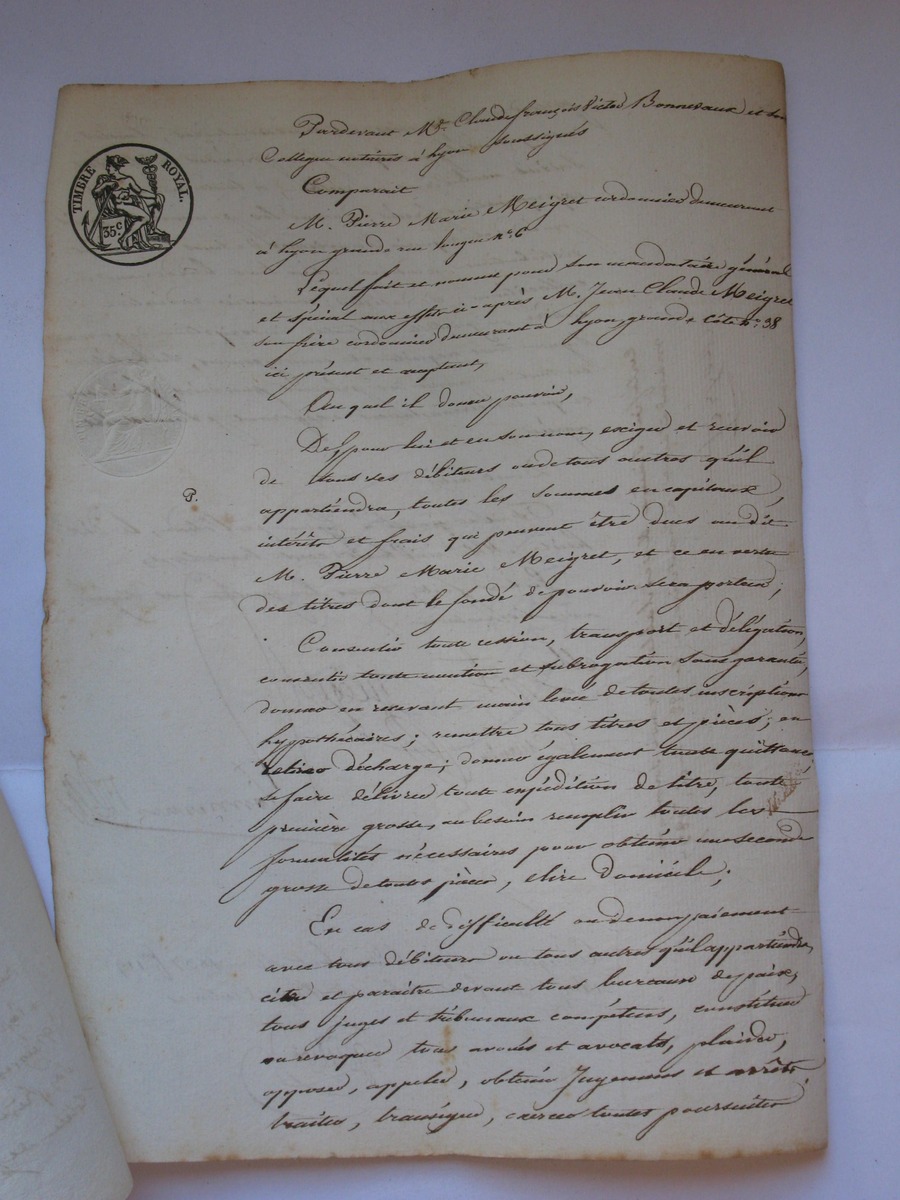 TIMBRE ROYAL.
35.c
Pardevant Me. Claude françois Victor Bonnevaux et son
Collègue notaires à Lyon soussignés
Comparait
M. Pierre Marie Meigret cordonnier demeurant
à Lyon grande rue longue n.o 6
Lequel fait et nomme pour son mandataire général
et spécial aux effets ci-après M. Jean Claude Meigret
son frère cordonnier demeurant à Lyon, grande Côte n.o 38
ici présent et acceptant,
Auquel il donne pouvoir,
De, pour lui et en son nom, exiger et recevoir
de tous ses débiteurs ou de tous autres qu'il
P.
appartiendra, toutes les sommes en capitaux,
intérêts et frais qui peuvent être dues au dit
M. Pierre Marie Meigret, et ce en vertu
des titres dont le fondé de pouvoir sera porteur;
Consentir toute cession, transport et délégation,
consentir toute mention et subrogation sans garantie,
donner en recevant main levée de toutes inscriptions
hypothécaires; remettre tous titres et pièces; en
retirer décharge; donner également toute quittance
se faire délivrer toute expédition de titre, toute
première grosse, au besoin remplir toutes les
formalités nécessaires pour obtenir une seconde
grosse de toutes pièces, élire domicile;
En cas de difficulté ou de non paiement
avec tous débiteurs ou tous autres qu'il appartiendra,
citer et paraître devant tous bureaux de paix,
tous juges et tribunaux compétens, constituer
ou révoquer tous avoués et avocats, plaider,
opposer, appeler, obtenir Jugemens et arrêts
traiter, transiger, exercer toutes poursuites